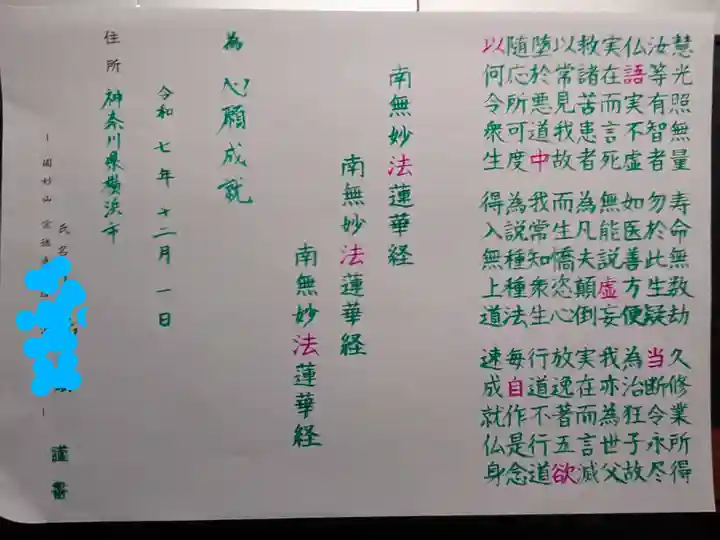 慧光照無量 寿命無数劫 久修業所得
汝等有智者 勿於此生疑 当断令永尽
仏語実不虚 如医善方便 為治狂子故
実在而言死 無能説虚妄 我亦為世父
救諸苦患者 為凡夫顛倒 実在而言滅
以常見我故 而生憍恣心 放逸著五欲
堕於悪道中 我常知衆生 行道不行道
随応所可度 為説種種法 毎自作是念
以何令衆生 得入無上道 速成就仏身
南無妙法蓮華経
南無妙法蓮華経
南無妙法蓮華経
為 心願成就
令和 七年 十二月 一日
住所 神奈川県横浜市
氏名 謹書